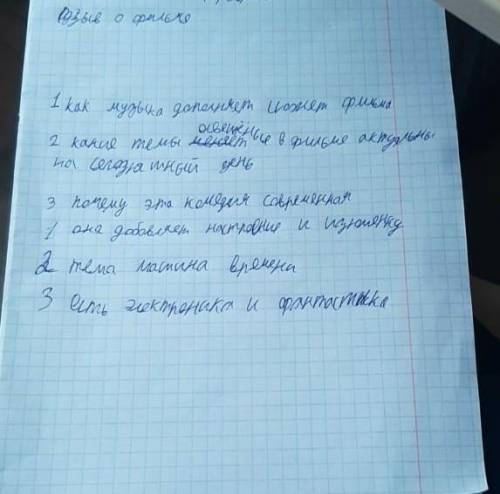 Отзыв о фильме
1 как музыка дополняет сюжет фильма
освещённые
2 какие темы в фильме актуальны
на сегодятный день
3 почему эта комедия современная
1 она добавляет настроние и изюменку
2 тема машина времени
3 есть электроника и фантастика